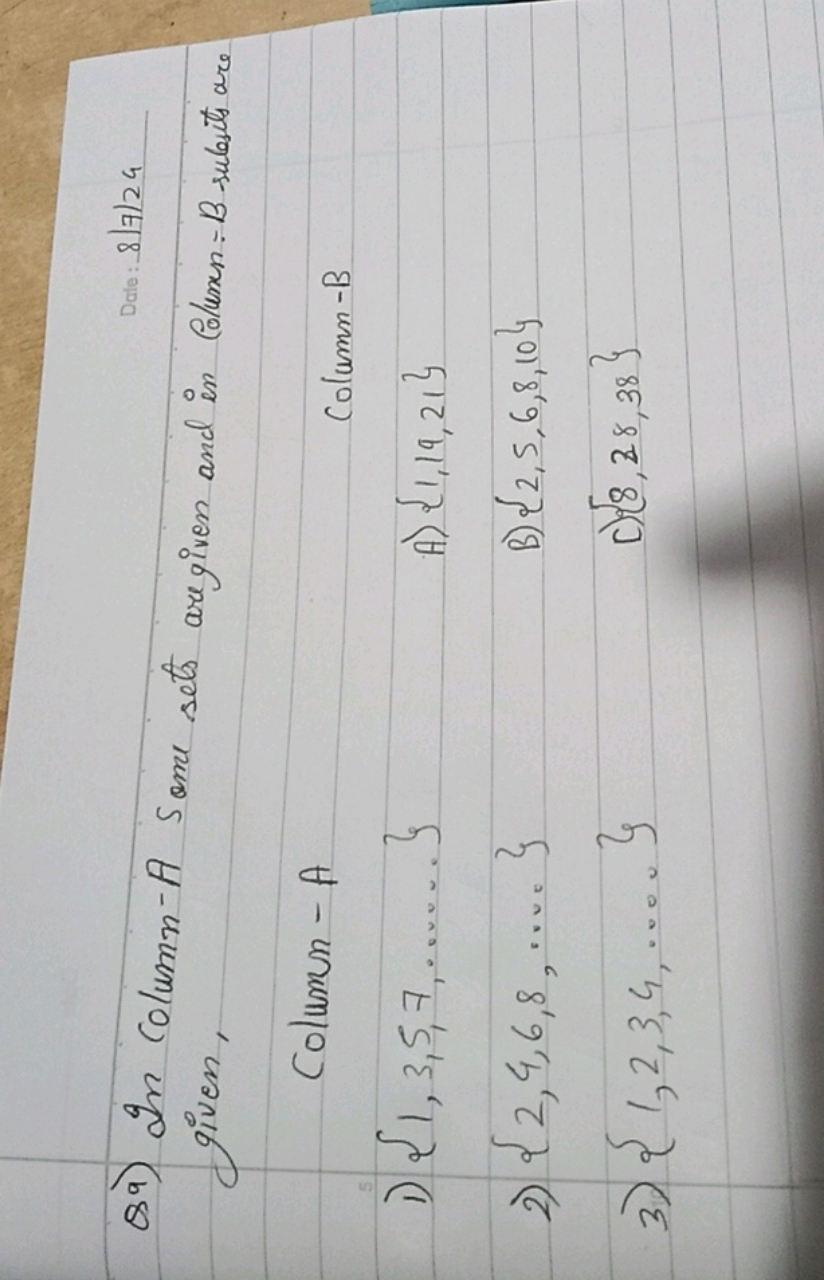 Date: 8/7/24
Q9) In Column-A Some sets are given and in Column-B subsets are
given,
Column - A Column-B
1) {1,3,5,7,.......} A) {1,19,21}
2) {2,4,6,8,.....} B) {2,5,6,8,10}
3) {1,2,3,4,.....} C) {8,28,38}
5